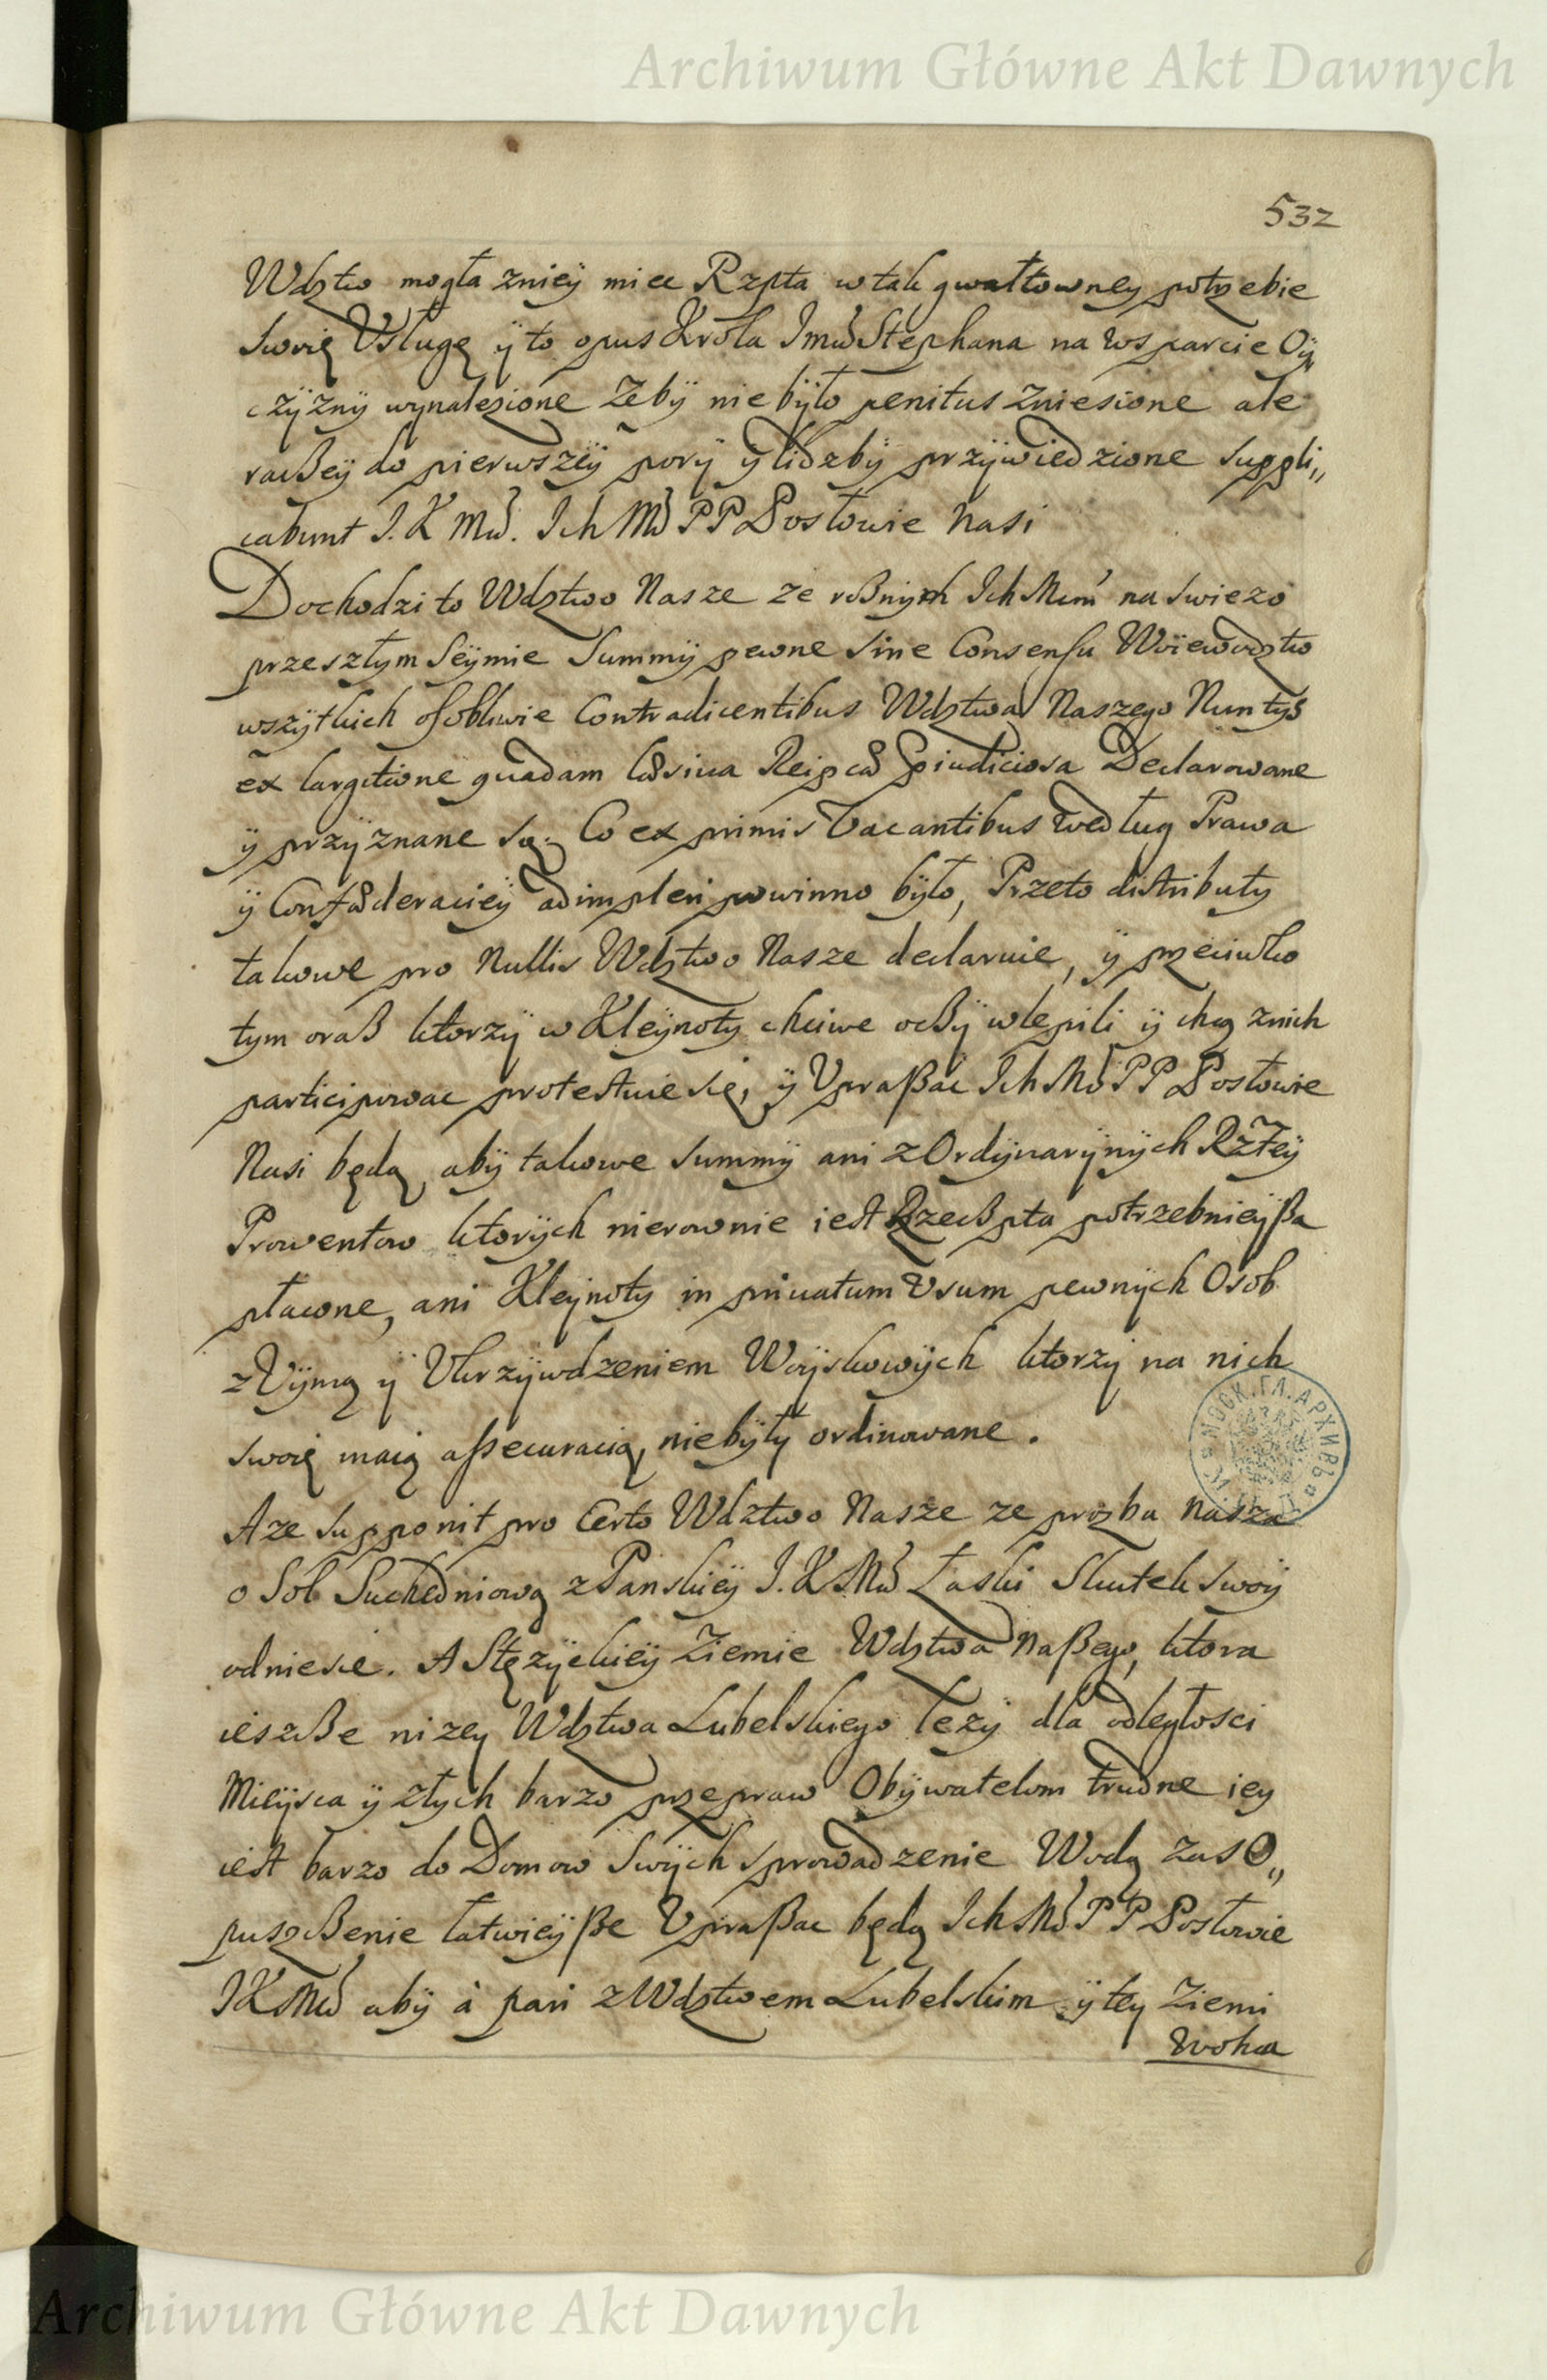 Archiwum Główne Akt Dawnych
532
Wdztwo mogła zniey miec Rzpta w tak gwałtowney potrzebie
swoię Usługę ÿ to opus Krola Jmci Stephana na wsparcie Oÿ„
czÿznÿ wynalezione zebÿ nie bÿło penitus zniesione ale
racßeÿ do pierwszeÿ porÿ ÿ lidzbÿ przÿwiedzione suppli„
cabunt J. K Mci. Ich Mci PP Posłowie Nasi
Dochodzi to Wdztwo Nasze ze roßnÿch Ich Mciom na swiezo
przeszłym Seÿmie Summÿ pewne sine Consensu Woiewodztw
wszÿtkich osobliwie Contradicentibus Wdztwa Naszego Nuntÿs
ex largitione quadam læsiua Reipcæ p̱iudiciosa Declarowane
ÿ przÿznane są. Co ex primis Vacantibus według Prawa
ÿ Confæderacieÿ adimpleri powinno bÿło, Przeto distributy
takowe pro Nullis Wdztwo Nasze declaruie, ÿ przeciwko
tym oraß ktorzÿ w Kleÿnoty chciwe ocßÿ wlepili ÿ chcą znich
participowac protestuie się, ÿ Upraßac Ich Mci PP Posłowie
Nasi będą abÿ takowe summÿ ani z Ordÿnarÿnÿch Rzłeÿ
Prowentow ktorÿch nierownie iest Rzecßpta potrzebnieÿßa
płacone, ani Kleÿnoty in priuatum Vsum pewnÿch Osob
z Uÿmą ÿ Ukrzÿwdzeniem Woÿskowÿch ktorzÿ na nich
swoię maią assecuracią, niebÿłÿ ordinowane.
A ze supponit pro Certo Wdztwo Nasze ze prozba nasza
o Sol Suchedniową z Panskieÿ J. K Mci Łaski Skutek swoÿ
odniesie. A Stęzÿckieÿ Ziemie Wdztwa Naßego, ktora
ieszcße nizeÿ Wdztwa Lubelskiego lezÿ dla odległosci
Mieÿsca ÿ złych barzo przepraw Obÿwatelom trudne iey
iest barzo do Domow Swÿch sprowadzenie Wodą zas O„
puszcßenie łatwieÿße Upraßac będą Ich Mci PP Posłowie
JK Mci abÿ à pari z Wdztwem Lubelskim ÿ teÿ Ziemi
МОСК. ГЛ. АРХИВЪ
Archiwum Główne Akt Dawnych